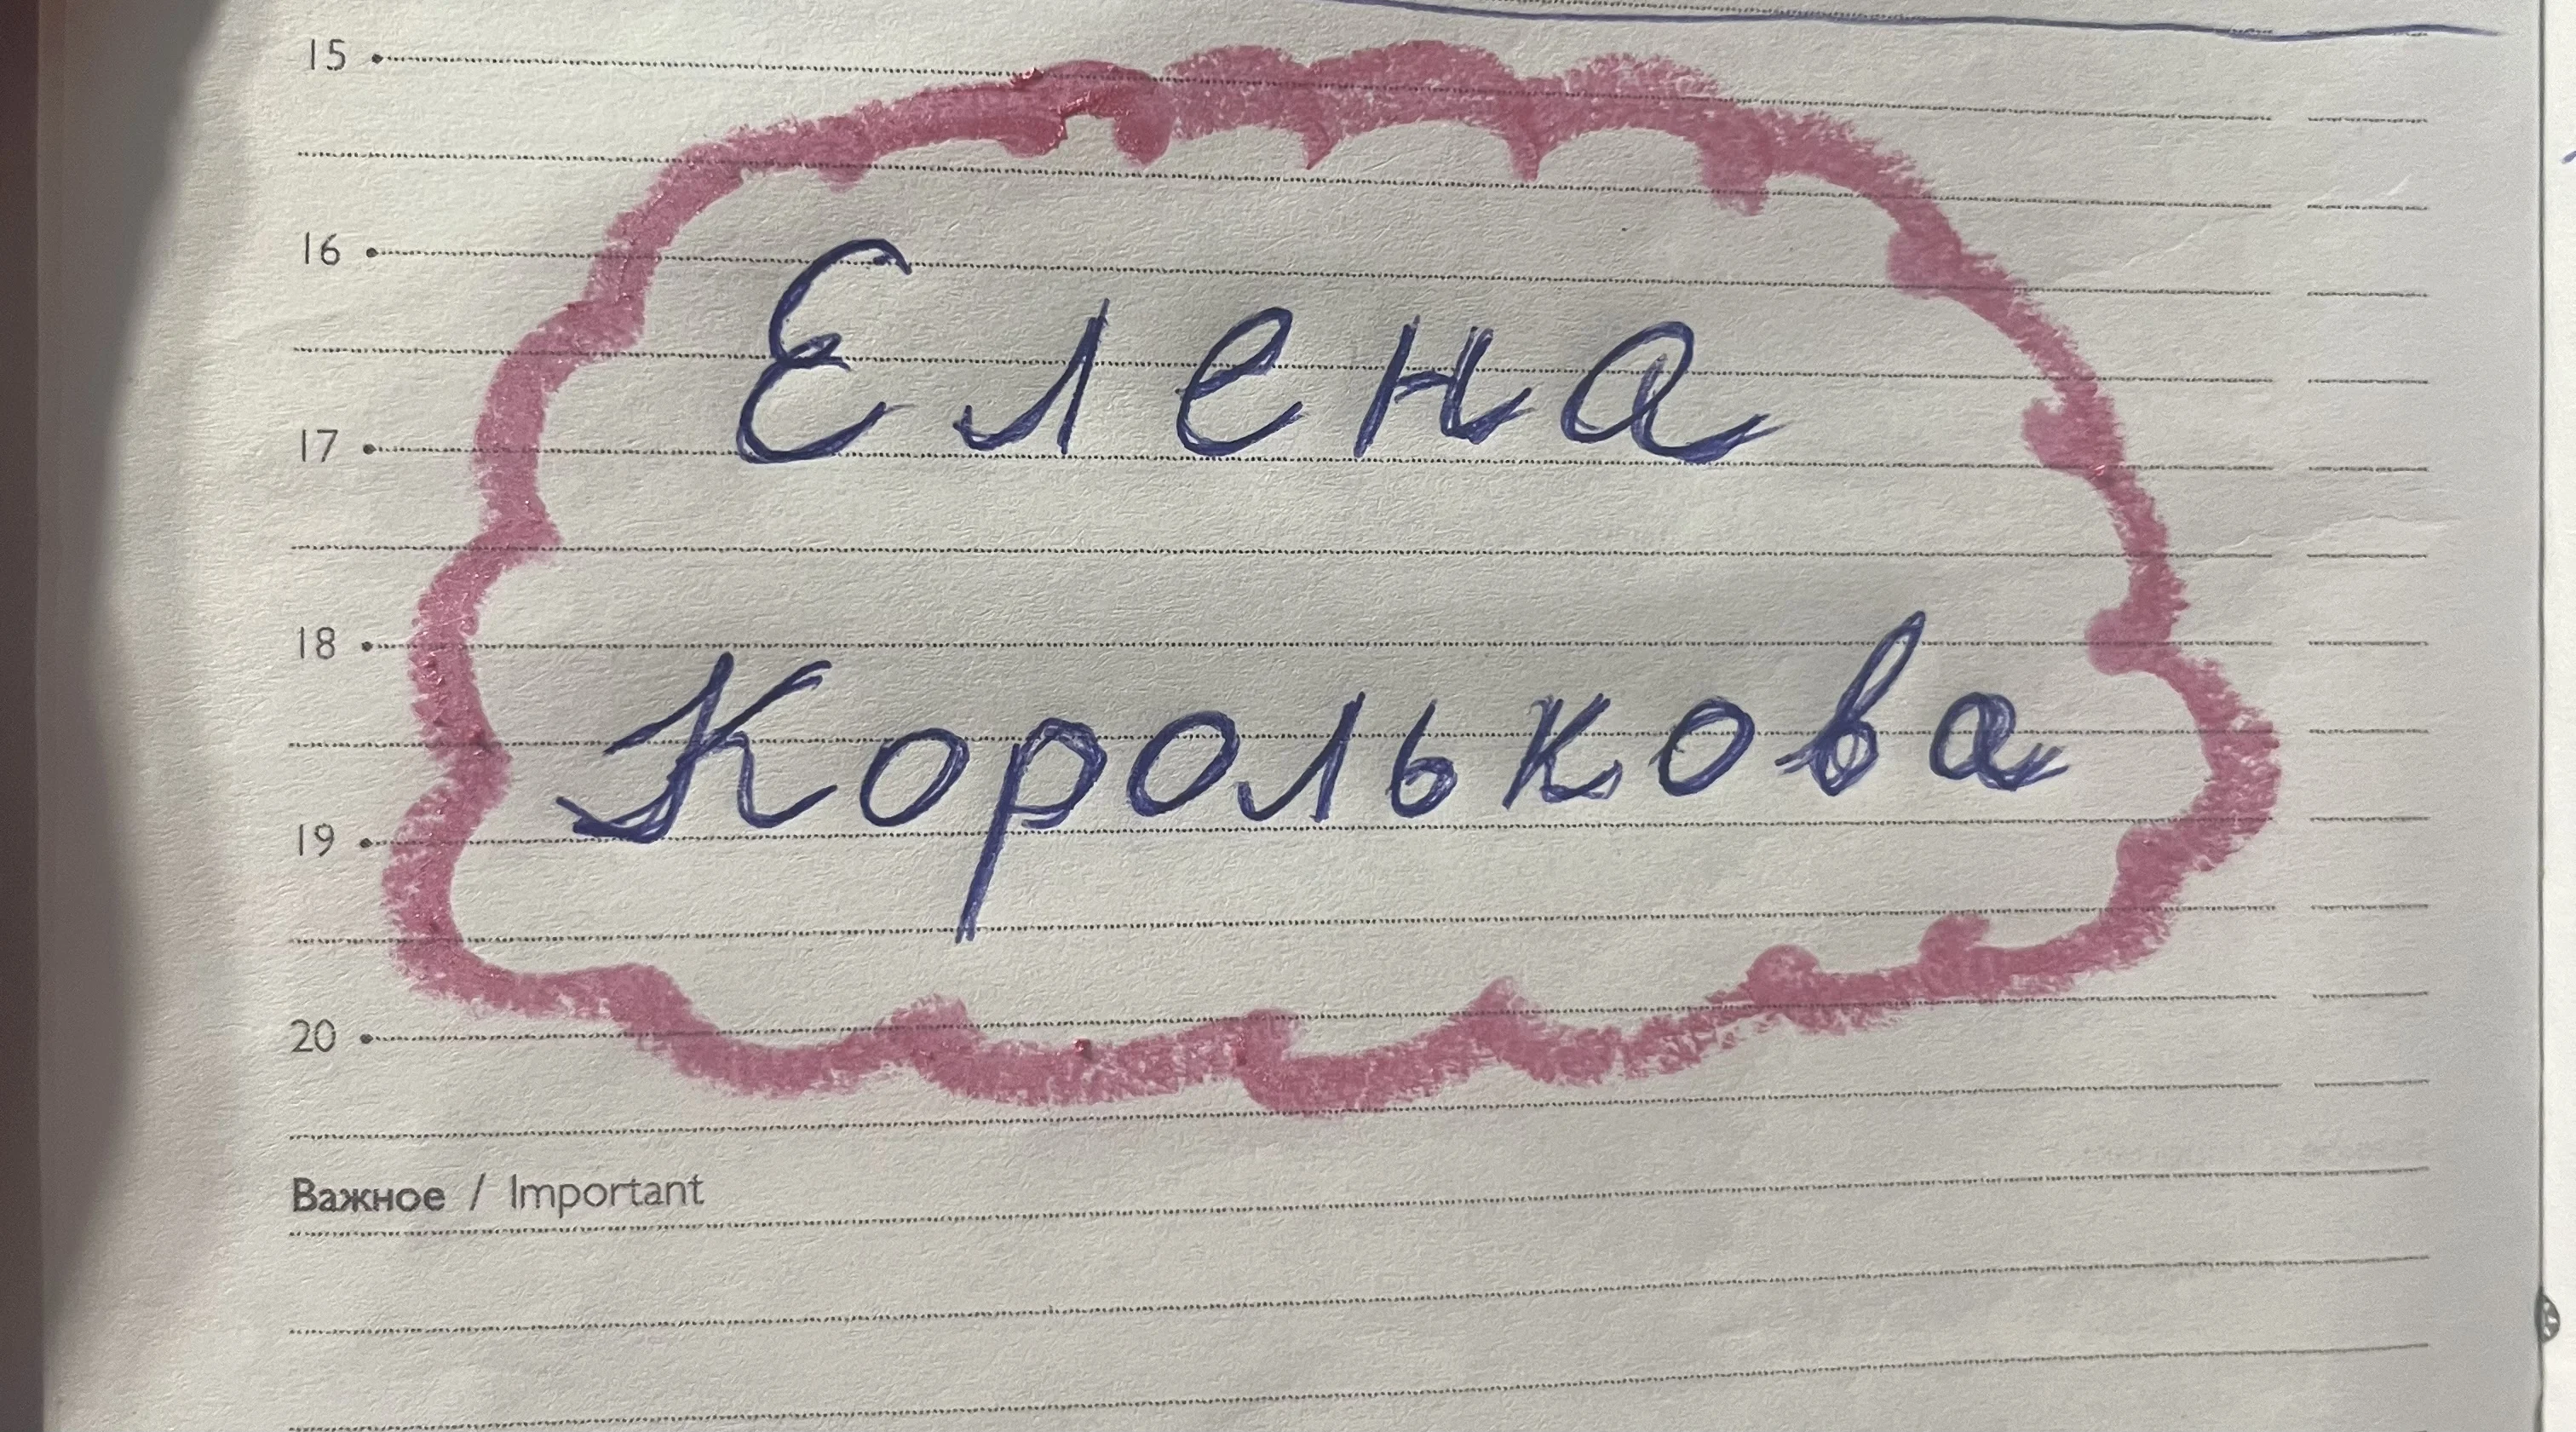 15
16
Елена
17
18
Королькова
19
20
Важное / Important